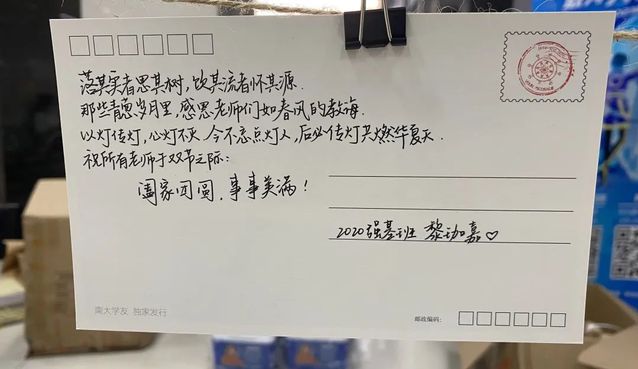 落其实者思其树，饮其流者怀其源.
那些青葱岁月里，感恩老师们如春风的教诲.
以灯传灯，心灯不灭，今不忘点灯人，后必传灯火燃华夏天.
祝所有老师于双节之际：
阖家团圆，事事美满！
2020强基班 黎珈嘉♡
南大学友 独家发行
邮政编码：